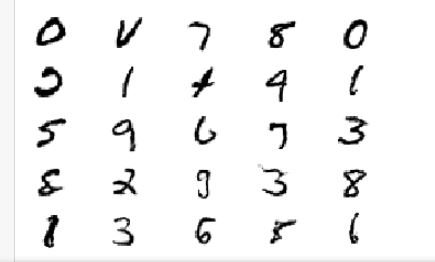 0 V 7 8 0
1 4 9 1
5 9 6 7 3
8 2 9 3 8
1 3 6 8 6